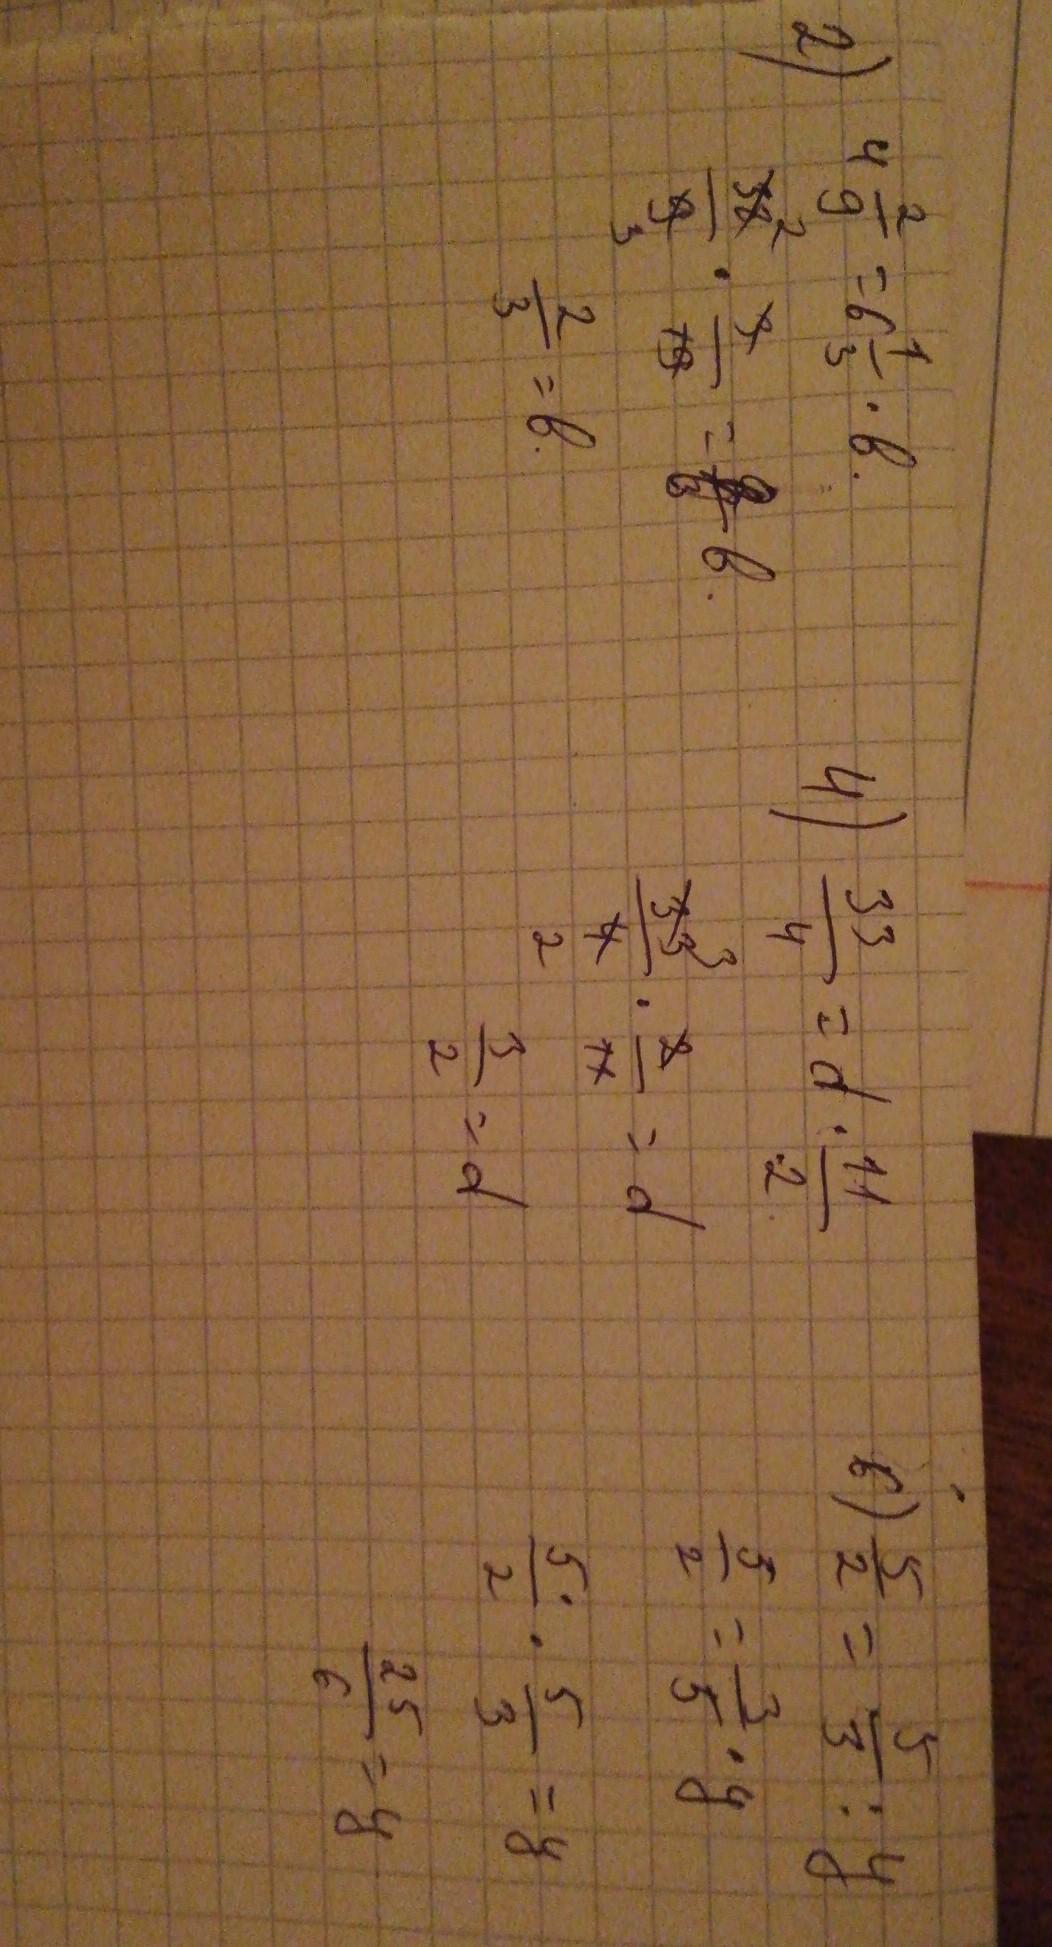 2) 4 2/9 = 6 1/3 · b.
38 2/9 3 · 9/19 = b.
2/3 = b.
4) 33/4 = d · 11/2
33 3/4 2 · 2/11 = d
3/2 = d
6) 5/2 = 5/3 : y
5/2 = 3/5 · y
5/2 · 5/3 = y
25/6 = y